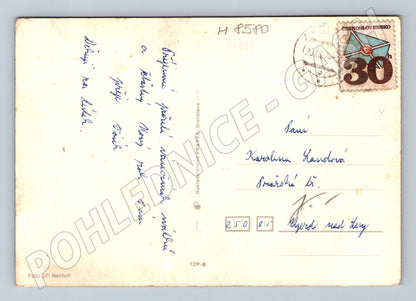 H 8580
ČESKOSLOVENSKO
30
Příjemné prožití vánočních svátků
a šťastný Nový rok Vám
přeje
Děkuji za lístek.
Paní
Karolína Landová
250 85 Újezd nad Lesy
TZP-B
Foto: Jiří Nechvíl
POHLEDNICE